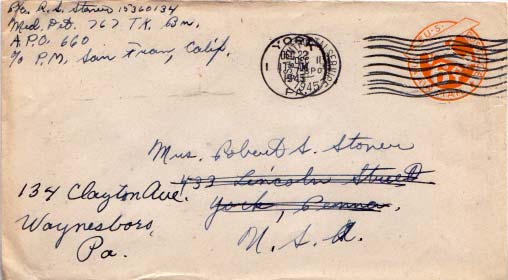 Pfc. R. S. Stoner 15360134
Med. Det. 767 TK. Bn.
A.P.O. 660
c/o P.M. San Fran, Calif.
YORK
DEC 22
1945
PA.
1945
U.S.
6¢
Mrs. Robert S. Stoner
433 Lincoln Street
York, Penna.
U. S. A.
134 Clayton Ave.
Waynesboro,
Pa.